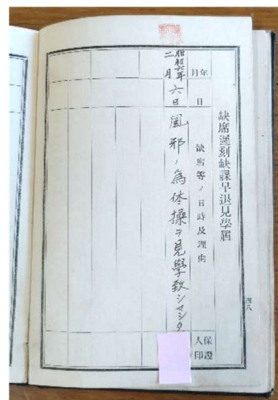 缺席遲刻缺課早退見學屆
年月日
缺席等ノ日時及理由
保證人印
昭和六年二月六日
風邪ノ為体操ヲ見學致シマシタ